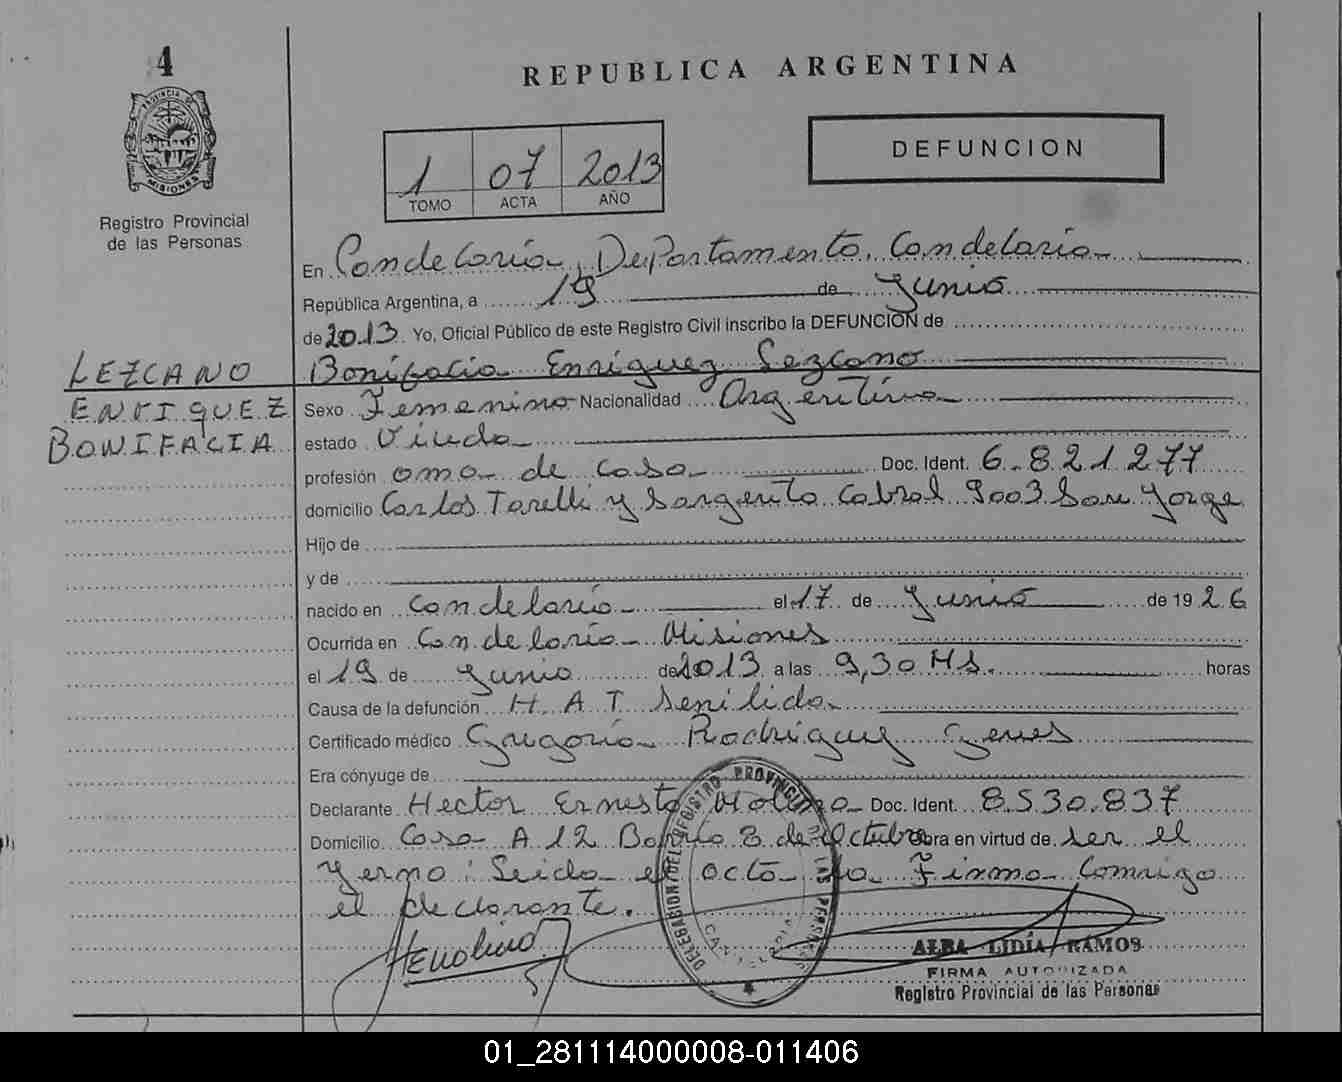 4
REPUBLICA ARGENTINA
PROVINCIA DE
MISIONES
Registro Provincial
de las Personas
1 07 2013
TOMO ACTA AÑO
DEFUNCION
En Candelaria, Departamento Candelaria
República Argentina, a 19 de Junio
de 2013 Yo, Oficial Público de este Registro Civil inscribo la DEFUNCIÓN de
LEZCANO
ENRIQUEZ
BONIFACIA
Bonifacia Enriquez Lezcano
Sexo Femenino Nacionalidad Argentina
estado Viuda
profesión ama de casa Doc. Ident. 6.821.277
domicilio Carlos Tarelli y Sargento Cabral 9003 San Jorge
Hijo de
y de
nacido en Candelaria el 17 de Junio de 19 26
Ocurrida en Candelaria Misiones
el 19 de Junio de 2013 a las 9,30 Hs. horas
Causa de la defunción H A T Senilidad
Certificado médico Gregorio Rodriguez
Era cónyuge de
Declarante Hector Ernesto Molina Doc. Ident. 8.530.837
Domicilio Casa A 12 Barrio 8 de Octubre Obra en virtud de ser el
Yerno Leida el acta la Firma Conmigo
el declarante.
DELEGACION DEL REGISTRO PROVINCIAL DE LAS PERSONAS
CANDELARIA
ALBA LIDIA RAMOS
FIRMA AUTORIZADA
Registro Provincial de las Personas
01_281114000008-011406